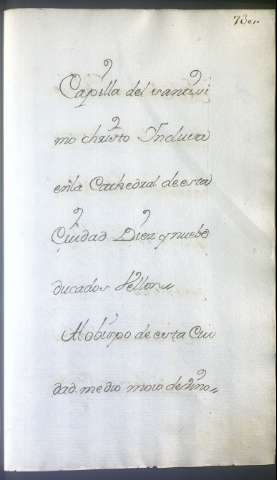 Capilla del santisi
mo christo Inclusa
en la Cathedral de esta
Ciudad Diez y nuebe
ducados Vellon
Al obispo de esta Ciu
dad. medio moio de vino